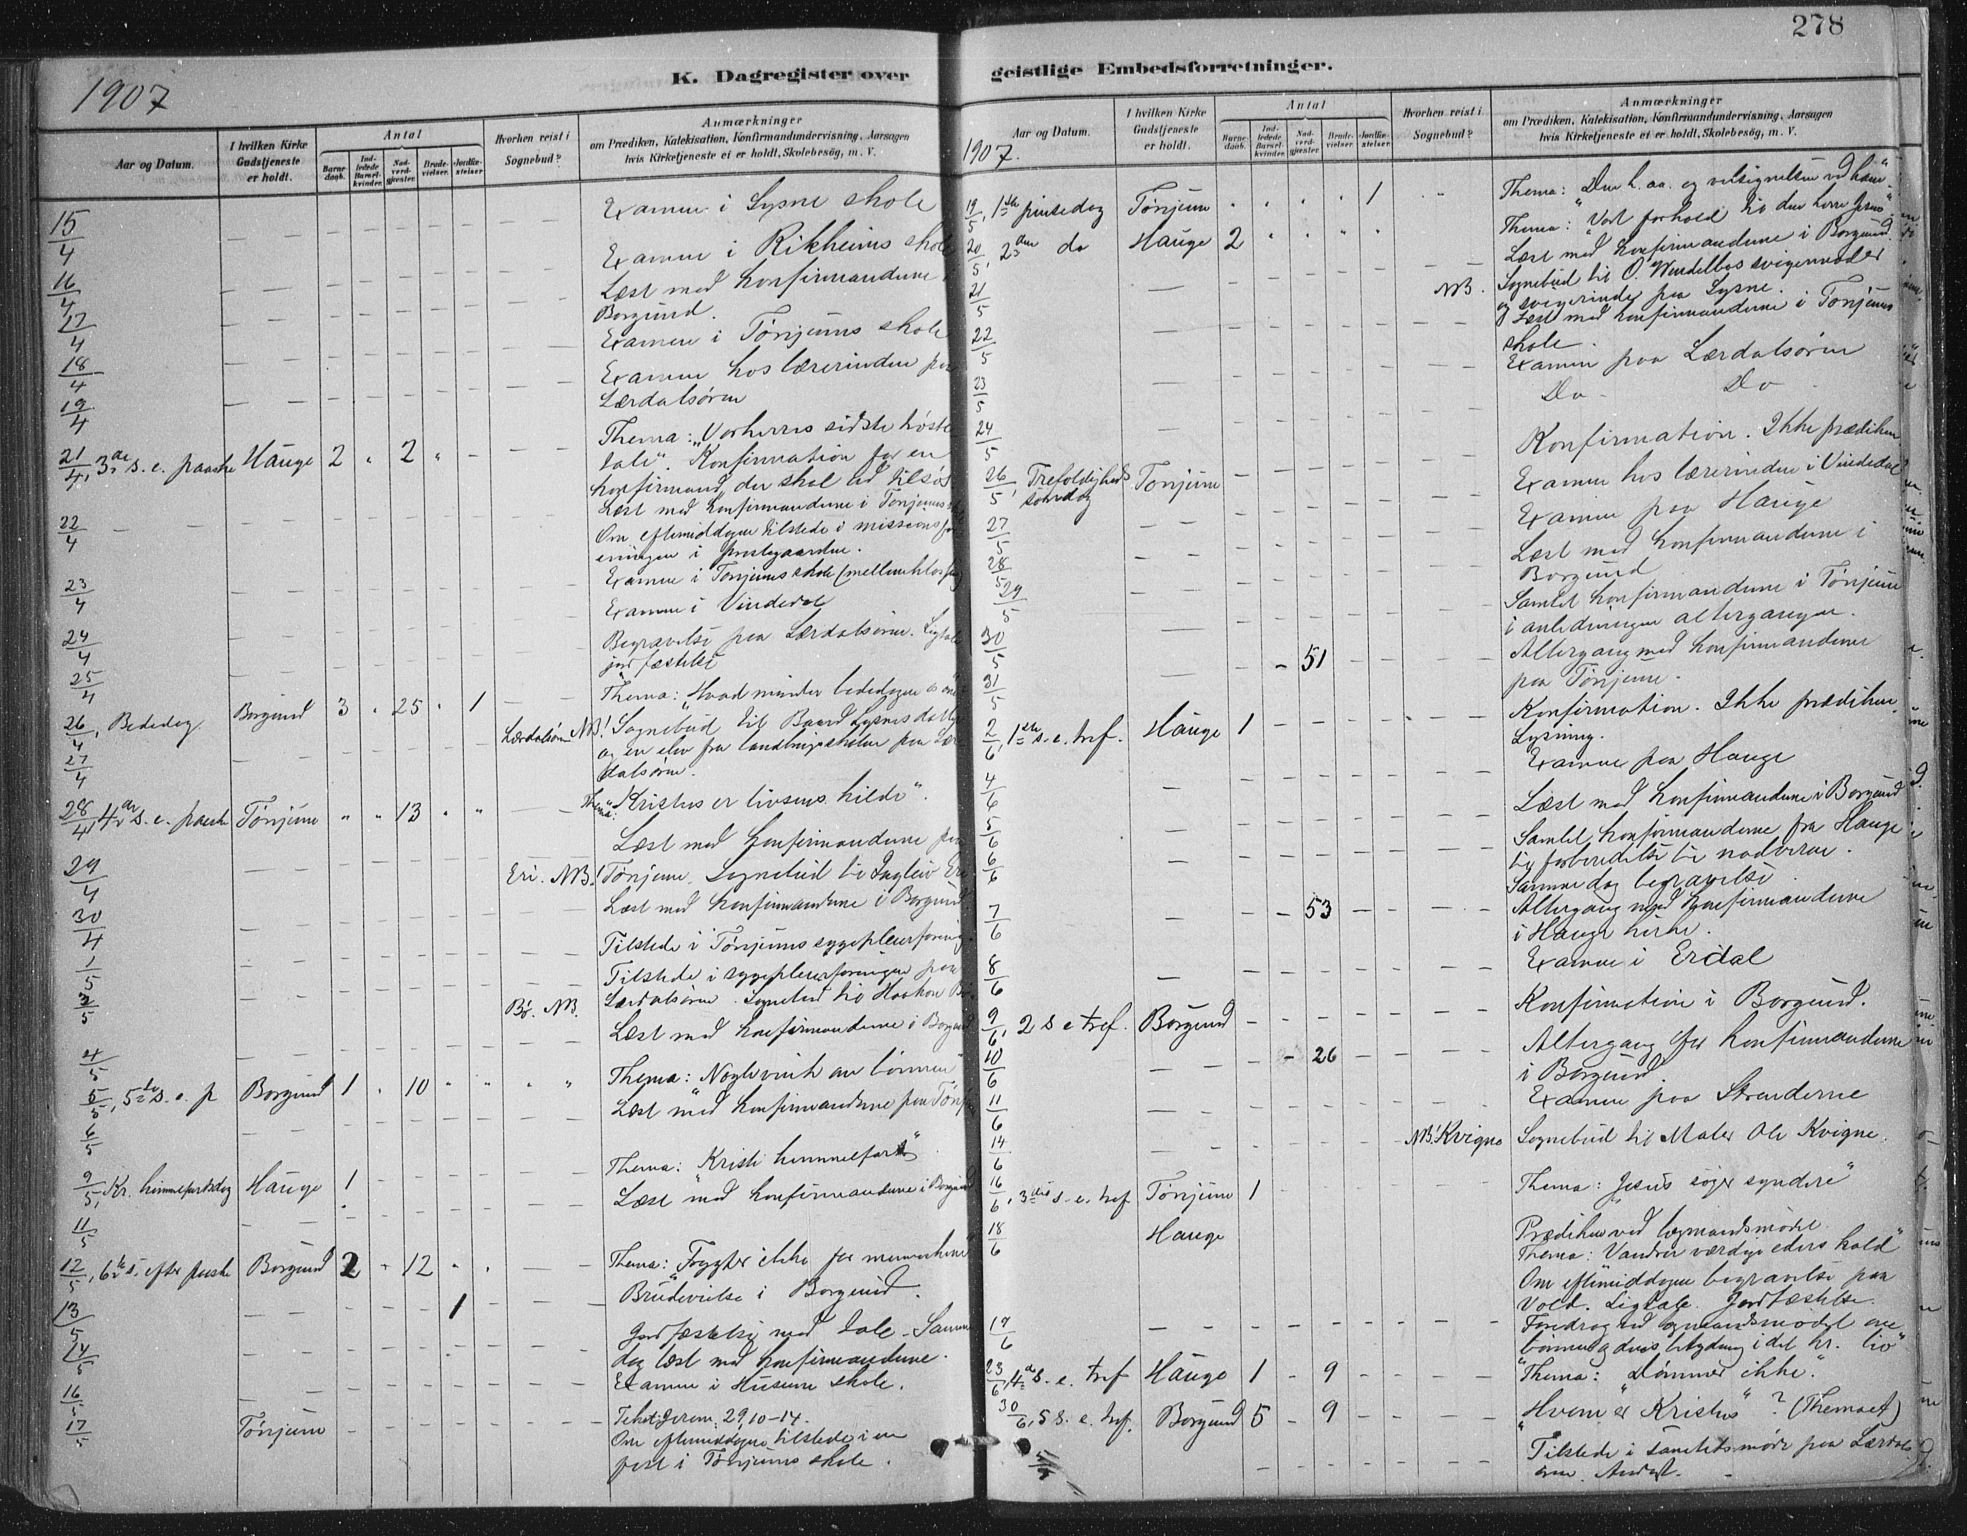 278
K. Dagregister over geistlige Embedsforretninger.
1907
Aar og Datum.
I hvilken Kirke Gudstjeneste er holdt.
Antal
Barne daab.
Ind-ledede Barsel-kvinder.
Nad-verd-gjæster
Brude-vielser.
Jordfæ-stelser
Hvorhen reist i Sognebud?
Anmærkninger
om Prædiken, Katekisation, Konfirmandundervisning, Aarsagen
hvis Kirketjeneste ei er holdt, Skolebesög, m. V.
15/4 Examen i Lysne skole
16/4 Examen i Rikheims skole
17/4 Læst med konfirmanderne i
Borgund.
18/4 Examen i Tønjums skole
19/4 Examen hos lærerinden paa
Lærdalsøren
21/4, 3die s. e. paaske Hauge 2 2 Thema: "Vorherres sidste høst
tale". Konfirmation for en
konfirmand, der skal ud tilsøs
22/4 Læst med konfirmanderne i Tønjums
Om eftermiddagen tilstede i missionsfor
eningen i prestegaarden.
23/4 Examen i Tønjums skole (mellemklassen)
24/4 Examen i Vindedal
25/4 Begravelse paa Lærdalsøren. Ligtale
jordfæstelse
26/4, Bededag Borgund 3 25 1 Thema: "Hvad minder bededagen os om"
27/4 Lærdalsøren NB! Sognebud til Baard Lysnes datter
og en elev fra landbrugsskolen paa Lær
dalsøren.
28/4, 4de s. e. paaske Tønjum 13 Thema: "Kristus er livsens kilde".
29/4 Læst med konfirmanderne paa
Eri. NB! Tønjum. Sognebud til Eri
30/4 Læst med konfirmanderne i Borgund
1/5 Tilstede i Tønjums sygepleierforening
3/5 Tilstede i sygepleierforeningen paa
Bø. NB. Lærdalsøren. Sognebud til Haakon Bø
4/5 Læst med konfirmanderne i Borgund
5/5, 5te s. e. p Borgund 1 10 Thema: "Nøglevink om bønnen"
6/5 Læst med konfirmanderne paa Tønjum
9/5, Kr. himmelfartsdag Hauge 1 Thema: "Kristi himmelfart"
11/5 Læst med konfirmanderne i Borgund
12/5, 6te s. efter paaske Borgund 2 12 Thema: "Frygter ikke for menneskene"
13/5 1 Brudevielse i Borgund.
14/5 Jordfæstelse med tale. Samme
dag læst med konfirmanderne.
16/5 Examen i Husum skole.
17/5 Tønjum Tekst: Jerem. 29, 10-14.
Om eftermiddagen tilstede i en
fest i Tønjums skole.
Aar og Datum.
I hvilken Kirke Gudstjeneste er holdt.
Antal
Barne-daab.
Ind-ledede Barsel-kvinder.
Nad-verd-gjæster
Brude-vielser.
Jordfæ-stelser
Hvorhen reist i Sognebud?
Anmærkninger
om Prædiken, Katekisation, Konfirmandundervisning, Aarsagen
hvis Kirketjeneste ei er holdt, Skolebesög, m. V.
1907.
19/5, 1ste pinsedag Tønjum 1 Thema: "Den h. aa. og velsignelsen ved ham"
20/5, 2den do Hauge 2 Thema: "Vort forhold til den herre Jesus"
21/5 Læst med konfirmanderne i Borgund.
NB. Sognebud til O. Wendelbos svigermoder
og svigerinde paa Lysne.
22/5 Læst med konfirmanderne i Tønjums
skole.
23/5 Examen paa Lærdalsøren
24/5 Do. Do
26/5, Trefoldigheds søndag Tønjum Konfirmation. Ikke prædiken
27/5 Examen hos lærerinden i Vindedal
28/5 Examen paa Hauge
29/5 Læst med konfirmanderne i
Borgund
30/5 Samlet konfirmanderne i Tønjum
i anledningen altergangen.
31/5 51 Altergang med konfirmanderne
paa Tønjum.
2/6, 1ste s. e. tref. Hauge 1 Konfirmation. Ikke prædiken,
Lysning.
4/6 Examen paa Hauge
5/6 Læst med konfirmanderne i Borgund
6/6 Samlet konfirmanderne fra Hauge
til forberedelse til nadveren.
Samme dag begravelse
7/6 53 Altergang med konfirmanderne
i Hauge kirke.
8/6 Examen i Erdal
9/6, 2 s e tref. Borgund Konfirmation i Borgund.
10/6 26 Altergang for konfirmanderne
i Borgund
11/6 Examen paa Strenderne
14/6 NB! Kvigne Sognebud til Maler Ole Kvigne.
16/6, 3die s. e. tref Tønjum 1 Thema: "Jesus søger syndere"
18/6 Hauge Prædiken ved lægmandsmødet.
Thema: "Vandrer værdige eders kald"
Om eftermiddagen begravelse paa
Vold. Ligtale. Jordfæstelse.
17/6 Foredrag ved lægmandsmødet om
bønnen og dens betydning i det kr. liv"
23/6, 4de s. e. tref Hauge 1 9 Thema: "Dømmer ikke".
30/6, 5 s. e. tref. Borgund 5 9 "Hvem er Kristus"? (Themaet)
Tilstede i sanitetsmøde paa Lærdals
øren. Andagt.